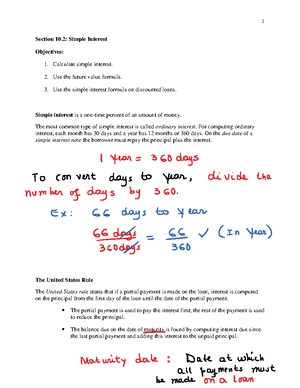 1
Section 10.2: Simple Interest
Objectives:
1. Calculate simple interest.
2. Use the future value formula.
3. Use the simple interest formula on discounted loans.
Simple interest is a one-time percent of an amount of money.
The most common type of simple interest is called ordinary interest. For computing ordinary
interest, each month has 30 days and a year has 12 months or 360 days. On the due date of a
simple interest note the borrower must repay the principal plus the interest.
1 Year = 360 days
To convert days to Year, divide the
number of days by 360.
Ex: 66 days to Year
66 days / 360 days = 66 / 360 ✓ (In Year)
The United States Rule
The United States rule states that if a partial payment is made on the loan, interest is computed
on the principal from the first day of the loan until the date of the partial payment.
• The partial payment is used to pay the interest first; the rest of the payment is used
to reduce the principal.
• The balance due on the date of maturity is found by computing interest due since
the last partial payment and adding this interest to the unpaid principal.
Maturity date : Date at which
all payments must
be made on a loan